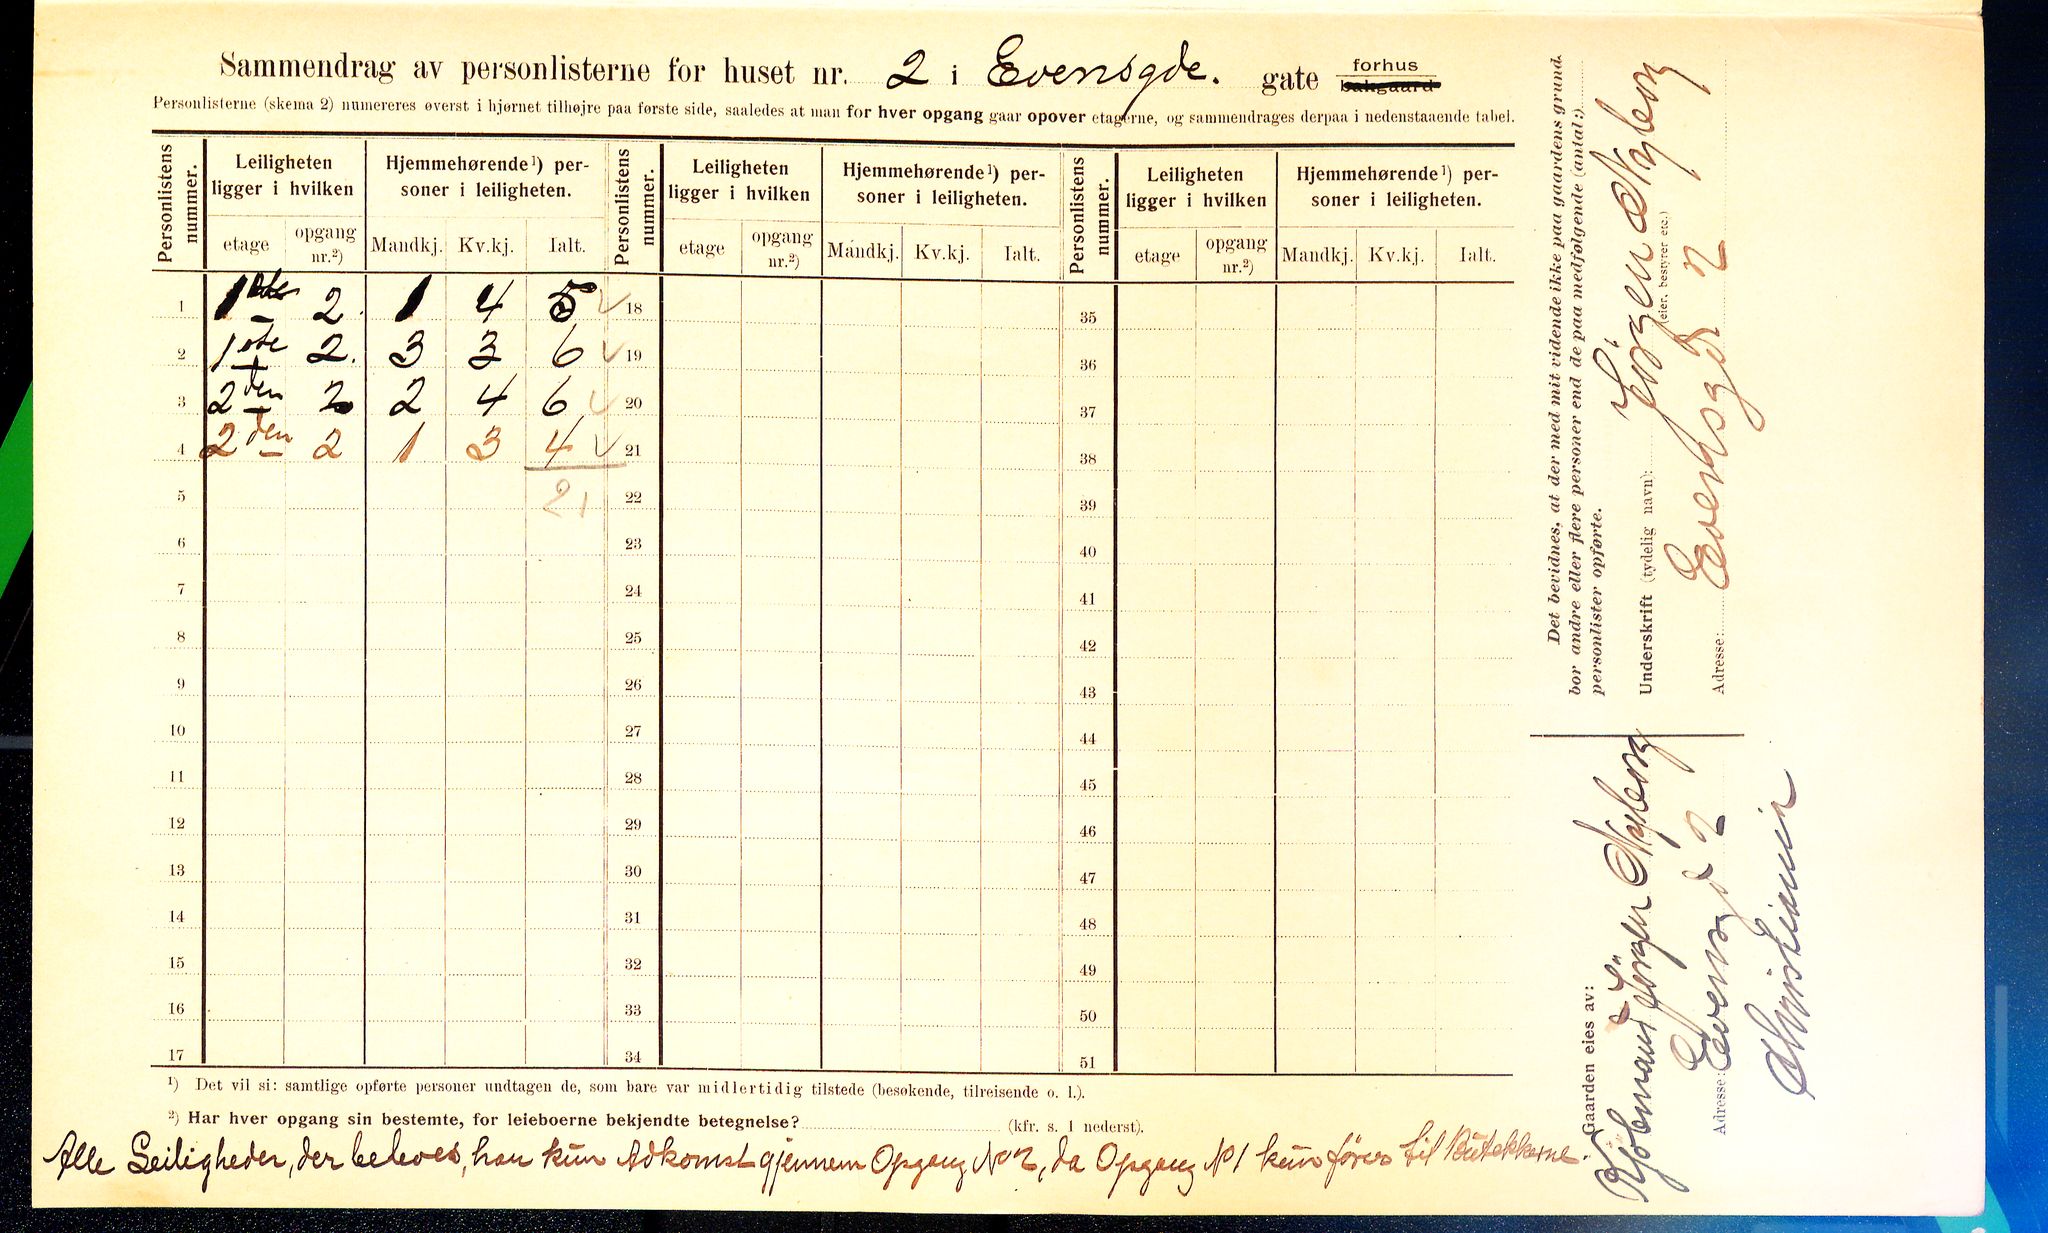 Sammendrag av personlisterne for huset nr. 2 i Evensgde. gate forhus bakgaard
Personlisterne (skema 2) numereres øverst i hjørnet tilhøjre paa første side, saaledes at man for hver opgang gaar opover etagerne, og sammendrages derpaa i nedenstaaende tabel.
Personlistens nummer. Leiligheten ligger i hvilken etage opgang nr.²) Hjemmehørende¹) personer i leiligheten. Mandkj. Kv.kj. Ialt.
Personlistens nummer. Leiligheten ligger i hvilken etage opgang nr.²) Hjemmehørende¹) personer i leiligheten. Mandkj. Kv.kj. Ialt.
Personlistens nummer. Leiligheten ligger i hvilken etage opgang nr.²) Hjemmehørende¹) personer i leiligheten. Mandkj. Kv.kj. Ialt.
1 1ste 2 1 4 5 18 35
2 1ste 2. 3 3 6 19 36
3 2den 2 2 4 6 20 37
4 2den 2 1 3 4 21 38
5 21 22 39
6 23 40
7 24 41
8 25 42
9 26 43
10 27 44
11 28 45
12 29 46
13 30 47
14 31 48
15 32 49
16 33 50
17 34 51
¹) Det vil si: samtlige opførte personer undtagen de, som bare var midlertidig tilstede (besøkende, tilreisende o. l.).
²) Har hver opgang sin bestemte, for leieboerne bekjendte betegnelse? (kfr. s. 1 nederst).
Alle Leiligheder, der beboes, har kun Adkomst gjennem Opgang No 2, da Opgang No 1 kun fører til Butikkerne.
Det bevidnes, at der med mit vidende ikke paa gaardens grund
bor andre eller flere personer end de paa medfølgende (antal:)
personlister opførte.
Underskrift (tydelig navn): Jörgen Nyborg
(eier, bestyrer etc.)
Adresse: Evensgd 2
Gaarden eies av:
Kjøbmand Jörgen Nyborg
Adresse: Evensgd 2
Christiania